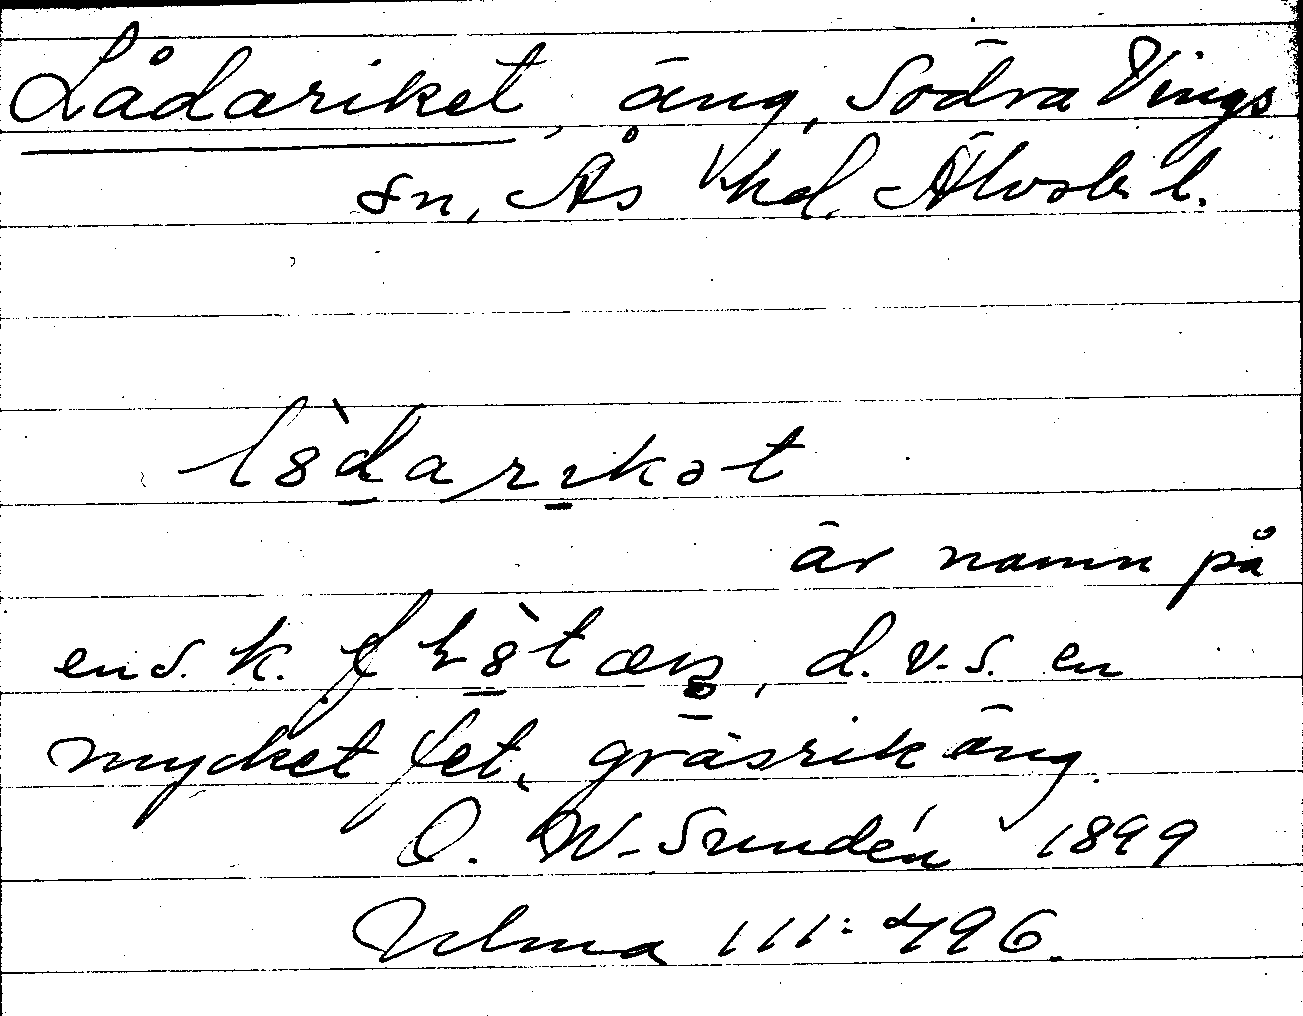 Lådariket, äng, Södra Vings
sn, Ås hd, Älvsb l.
l8̀darıkət
är namn på
en s. k.
, d. v. s. en
mycket fet, gräsrik äng.
O. W. Sundén 1899
Ulma 111:496.